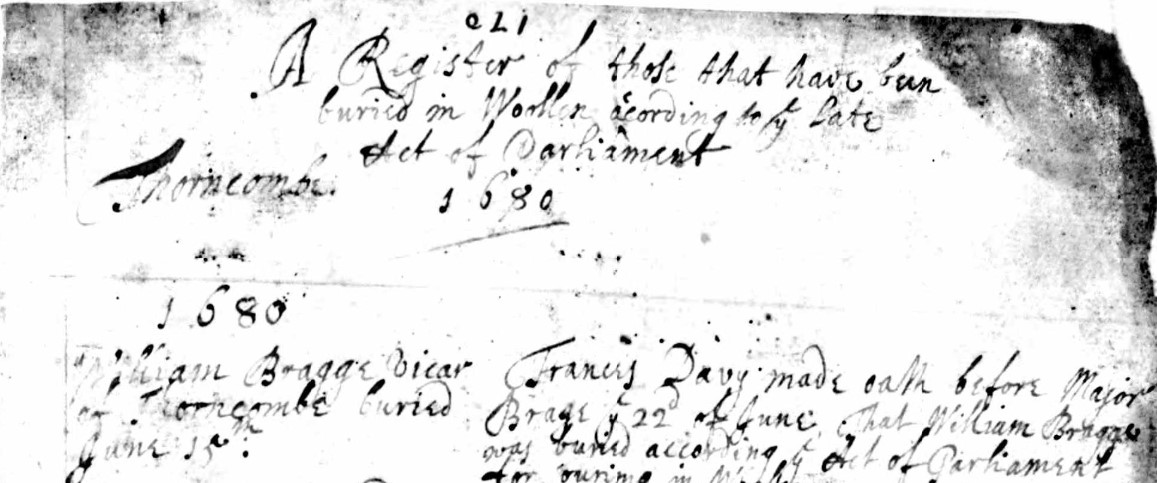 A Register of those that have been
buried in Woollen acording to yͤ Late
Act of Parliament
Thorncombe.
1680
1680
William Bragge Vicar
of Thorncombe buried
June 15th.
Francis Davy made oath before Major
Brage yͤ 22d of June That William Bragge
was buried according yͤ Act of Parliament
for buring in